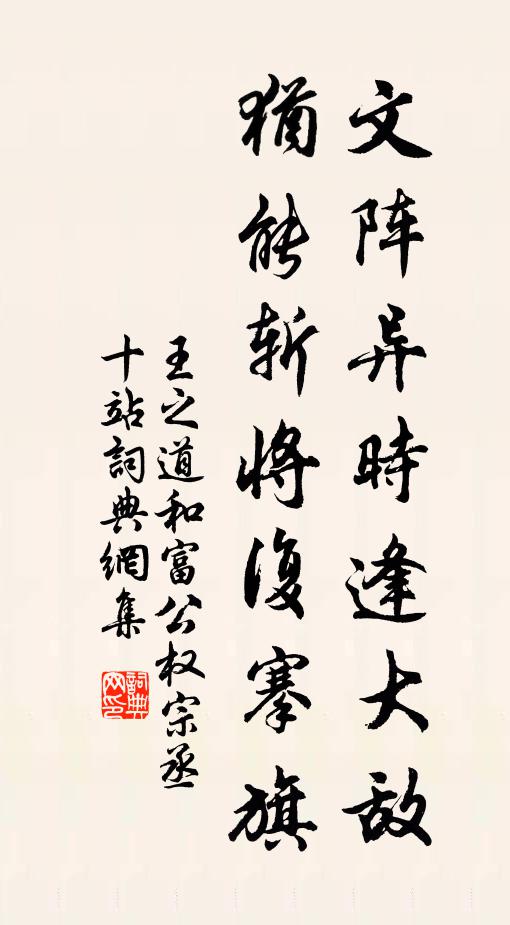 文阵异時逢大敌
犹能斩將復搴旗
王之道和富公权宗丞
十站詞典網集
詞典网印